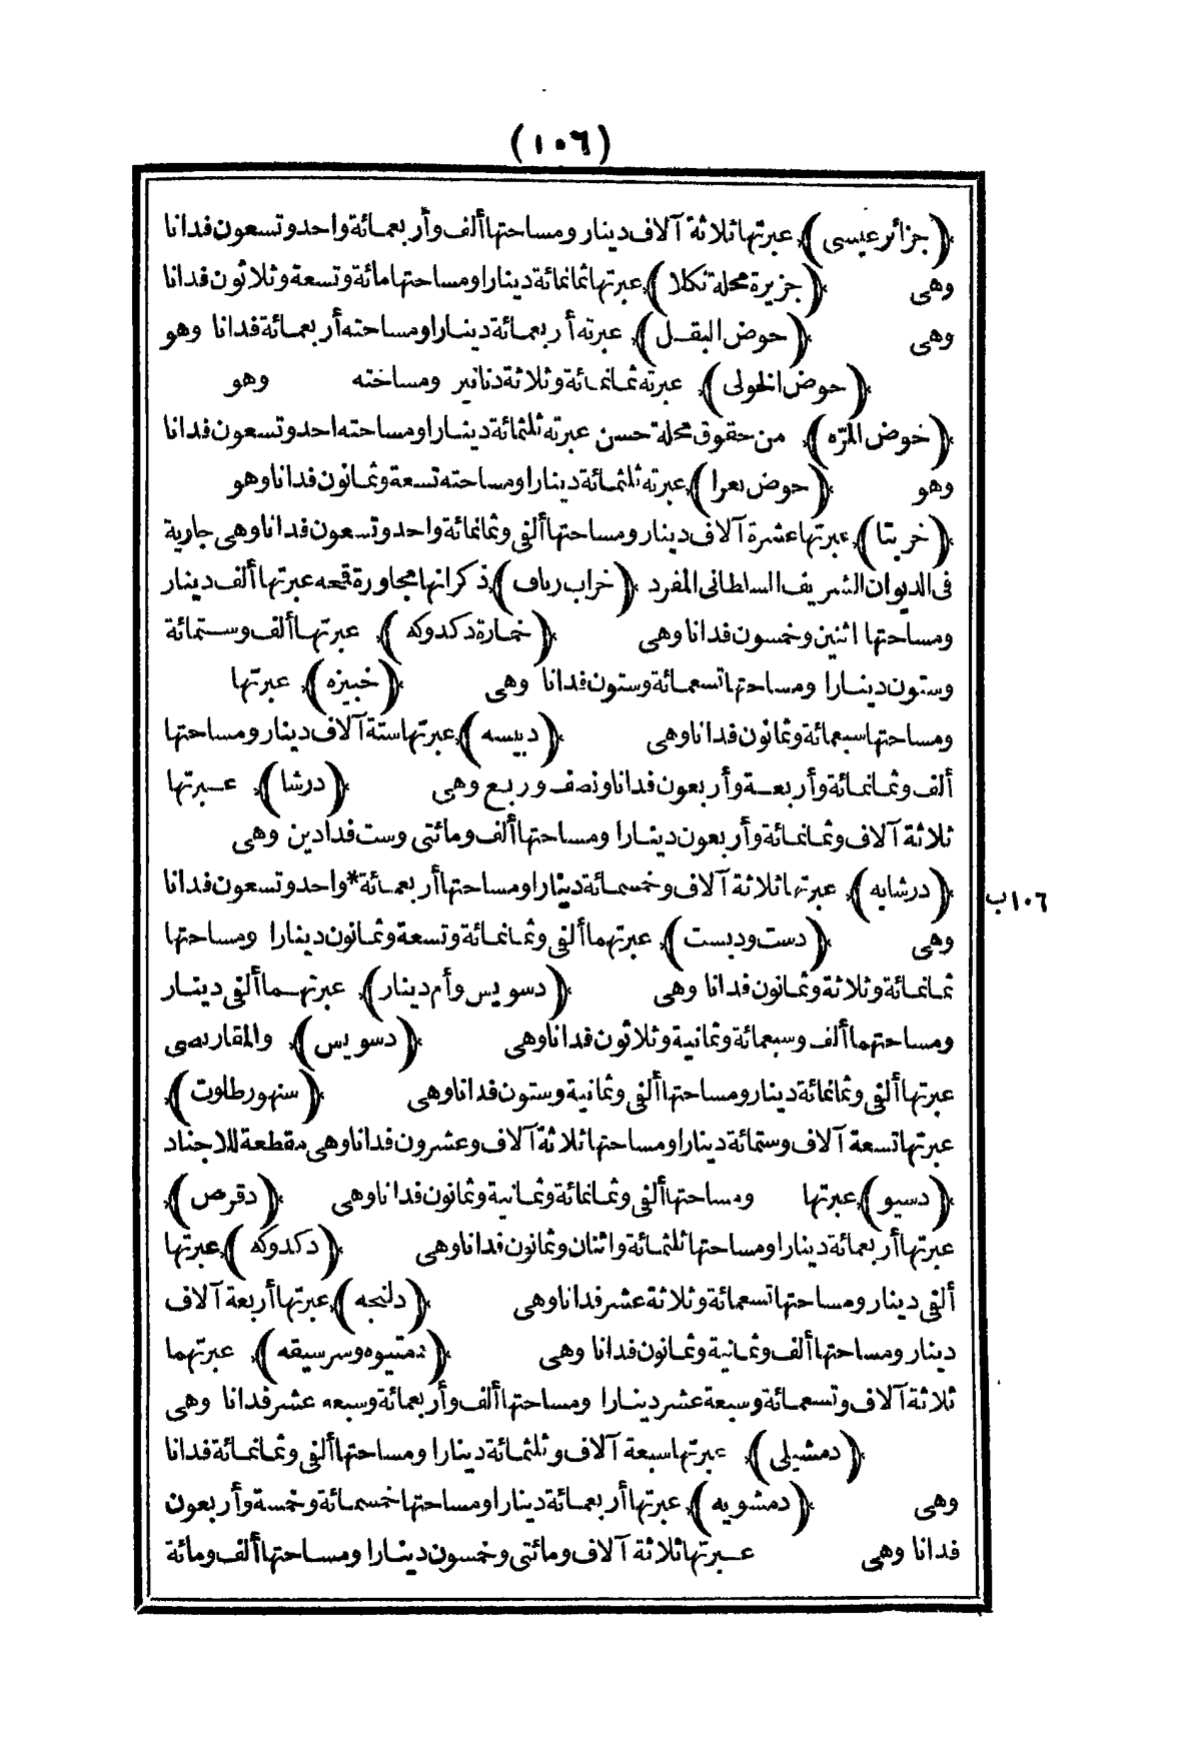 (١٠٦)
(جزائر عيسى) عبرتها ثلاثة آلاف دينار ومساحتها ألف وأربعمائة واحد وتسعون فدانا
وهى (جزيرة محلة نكلا) عبرتها ثمانمائة دينارا ومساحتها مائة وتسعة وثلاثون فدانا
وهى (حوض البقل) عبرته أربعمائة دينارا ومساحته أربعمائة فدانا وهو
(حوض الخولى) عبرته ثمانمائة وثلاثة دنانير ومساخته وهو
(خوض المرّه) من حقوق محلة حسن عبرته ثلثمائة دينارا ومساحته احد وتسعون فدانا
وهو (حوض بعرا) عبرته ثلثمائة دينارا ومساحته تسعة وثمانون فدانا وهو
(خربتا) عبرتها عشرة آلاف دينار ومساحتها ألفى وثمانمائة واحد وتسعون فدانا وهى جارية
فى الديوان الشريف السلطانى المفرد (خراب رياف) ذكرانها مجاورة قمحه عبرتها ألف دينار
ومساحتها اثنين وخمسون فدانا وهى (خمارة دكدوكه) عبرتها ألف وستمائة
وستون دينارا ومساحتها تسعمائة وستون فدانا وهى (خبيزه) عبرتها
ومساحتها سبعمائة وثمانون فدانا وهى (دبيسه) عبرتها ستة آلاف دينار ومساحتها
ألف وثمانمائة وأربعة وأربعون فدانا ونصف وربع وهى (درشا) عبرتها
ثلاثة آلاف وثمانمائة وأربعون دينارا ومساحتها ألف ومائتى وست فدادين وهى
(درشابه) عبرتها ثلاثة آلاف وخمسمائة دينارا ومساحتها أربعمائة*واحد وتسعون فدانا
١٠٦ب
وهى (دست ودبست) عبرتهما ألفى وثمانمائة وتسعة وثمانون دينارا ومساحتها
ثمانمائة وثلاثة وثمانون فدانا وهى (دسويس وأم دينار) عبرتهما ألفى دينار
ومساحتهما ألف وسبعمائة وثمانية وثلاثون فدانا وهى (دسويس) والمقاربصى
عبرتها ألفى وثمانمائة دينار ومساحتها ألفى وثمانية وستون فدانا وهى (سنهور طلاوت)
عبرتها تسعة آلاف وستمائة دينارا ومساحتها ثلاثة آلاف وعشرون فدانا وهى مقطعة للاجناد
(دسيو) عبرتها ومساحتها ألفى وثمانمائة وثمانية وثمانون فدانا وهى (دقرص)
عبرتها أربعمائة دينارا ومساحتها ثلثمائة واثنان وثمانون فدانا وهى (دكدوكه) عبرتها
ألفى دينار ومساحتها تسعمائة وثلاثة عشر فدانا وهى (دلنجه) عبرتها أربعة آلاف
دينار ومساحتها ألف وثمانية وثمانون فدانا وهى (دمتيوه وسرسيقه) عبرتهما
ثلاثة آلاف وتسعمائة وسبعة عشر دينارا ومساحتها ألف وأربعمائة وسبعه عشر فدانا وهى
(دمشيلى) عبرتها سبعة آلاف وثلثمائة دينارا ومساحتها ألفى وثمانمائة فدانا
وهى (دمشويه) عبرتها أربعمائة دينارا ومساحتها خمسمائة وخمسة وأربعون
فدانا وهى عبرتها ثلاثة آلاف ومائتى وخمسون دينارا ومساحتها ألف ومائة